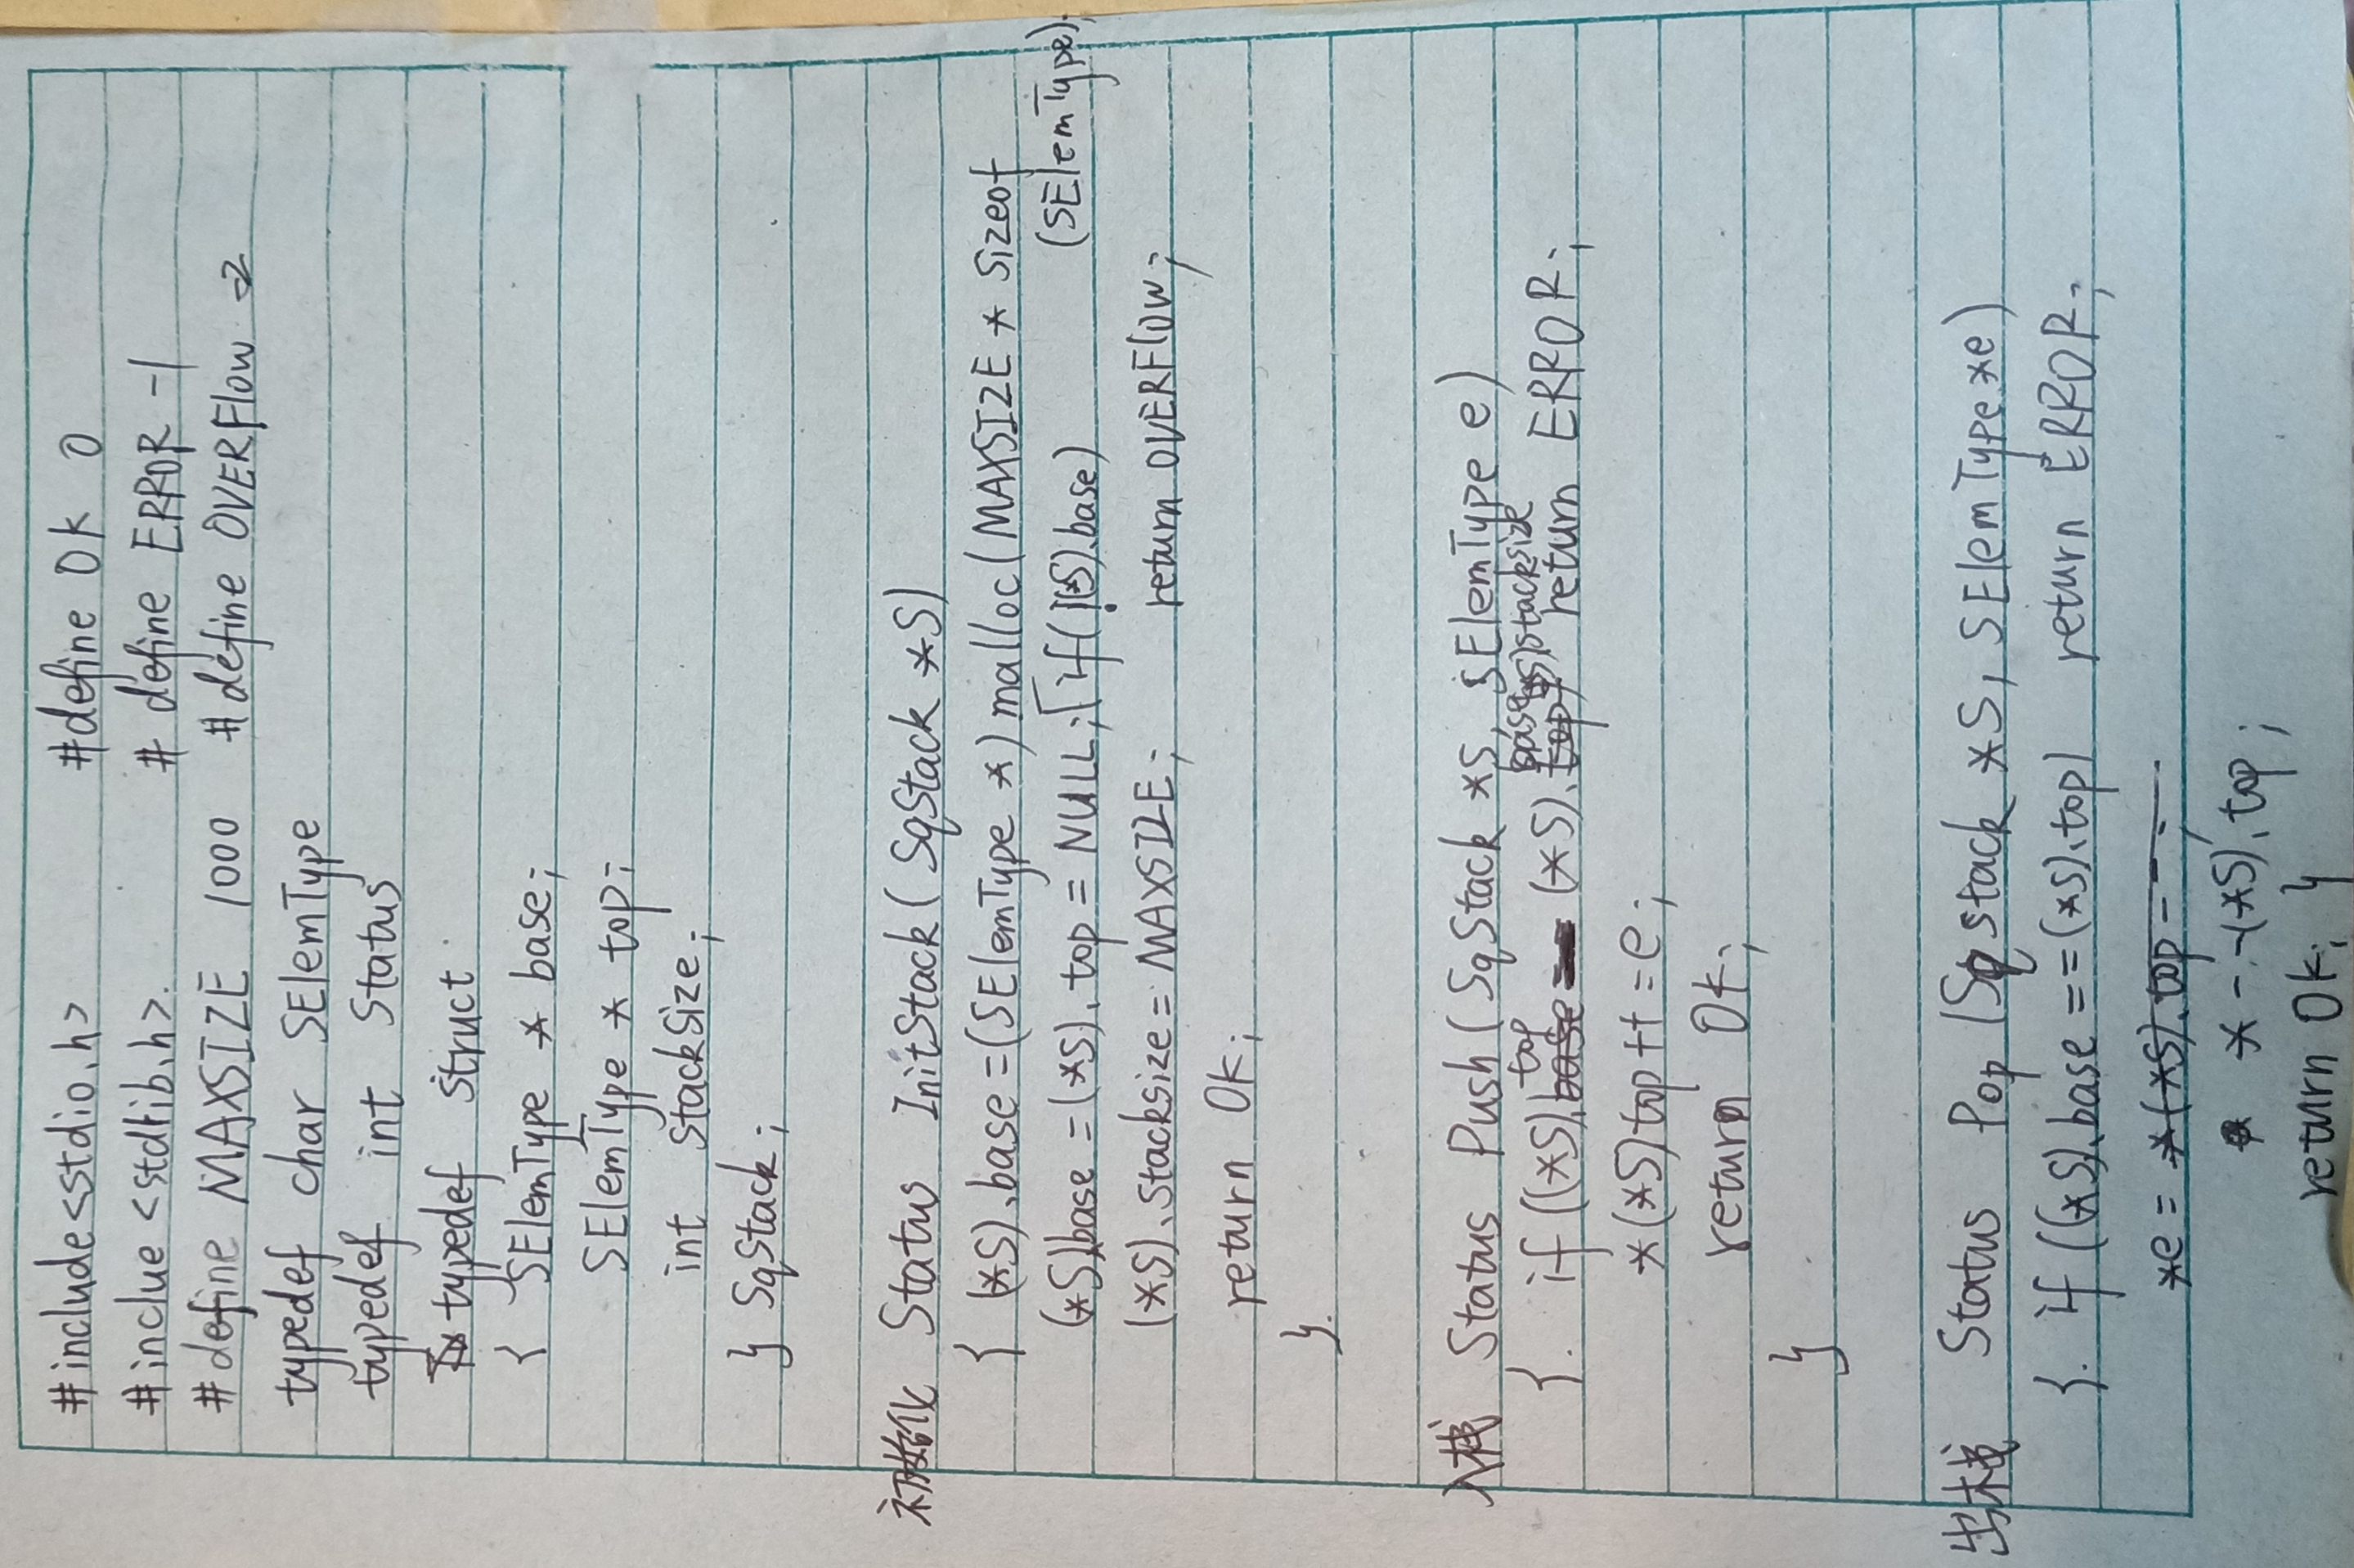 #include<stdio.h> #define Ok 0
#inclue <stdlib.h> # define ERROR -1
#define MAXSIZE 1000 #define OVERFlow -2
typedef char SElemType
typedef int Status
typedef struct
{ SElemType * base;
SElemType * top;
int stacksize;
} SqStack;
初始化 Status InitStack(SqStack *S)
{ (*S).base=(SElemType *)malloc(MAXSIZE * Sizeof
(SElemType);
(*S).base=(*S).top=NULL; if(!(*S).base)
(*S).stacksize=MAXSIZE; return OVERFlOW;
return Ok;
}
入栈 Status Push(SqStack *S, SElemType e)
{. if((*S).top (*S). base (*S)stacksize return ERROR;
*(*S)top++=e;
return Ok;
}
出栈 Status Pop(Sqstack *S, SElemType *e)
{. if((*S).base==(*S).top) return ERROR;
*e = *(*S).top--;
* --(*S).top;
return Ok; }